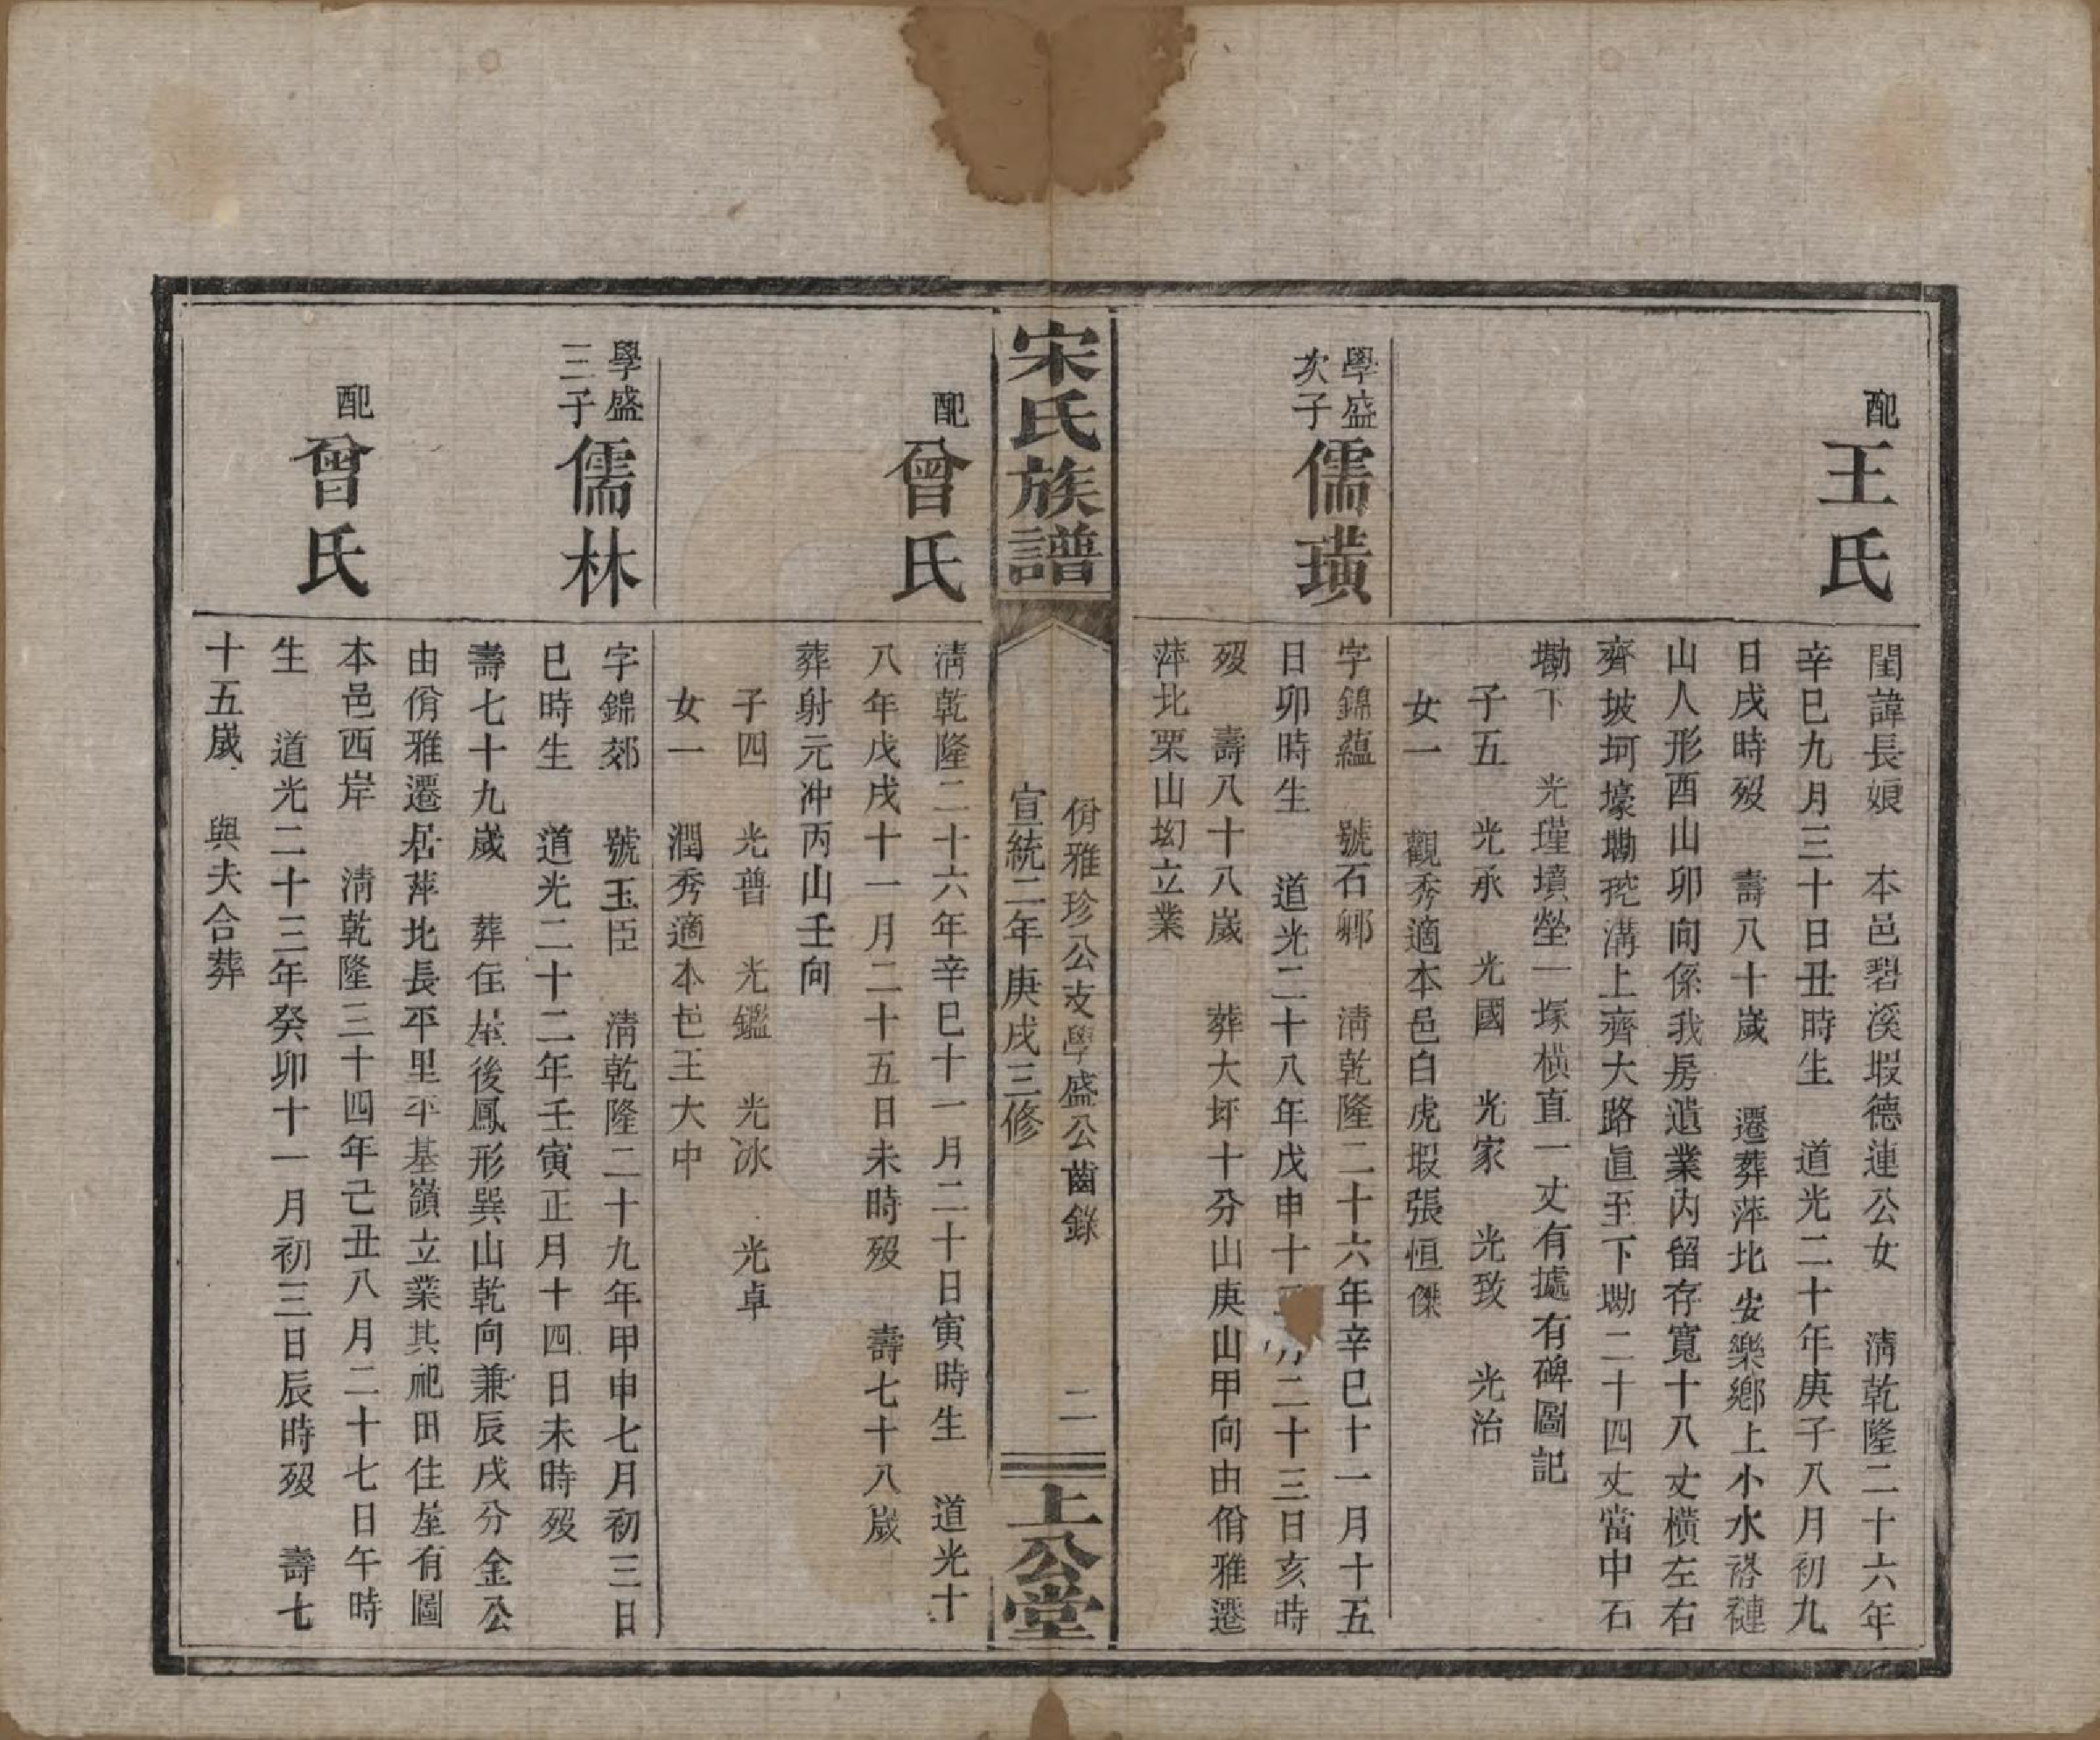 配
王氏
閨諱長娘　本邑碧溪塅德連公女　清乾隆二十六年
辛巳九月三十日丑時生　道光二十年庚子八月初九
日戌時歿　壽八十歲　遷葬萍北安樂鄉上小水褡褳
山人形酉山卯向係我房遺業內留存寬十八丈橫左右
齊坡坷壕墈挖溝上齊大路直至下墈二十四丈當中石
墈下　光瑾墳塋一塚橫直一丈有據有碑圖記
子五　光承　光國　光家　光致　光治
女一　觀秀適本邑白虎塅張恒傑
學盛
次子
儒璜
字錦蘊　號石鄉　清乾隆二十六年辛巳十一月十五
日卯時生　道光二十八年戊申十月二十三日亥時
歿　壽八十八歲　葬大坪十分山庚山甲向由佾雅遷
萍北栗山坳立業
宋氏族譜
佾雅珍公支學盛公齒錄
宣統二年庚戌三修
二
上公堂
配
曾氏
清乾隆二十六年辛巳十一月二十日寅時生　道光十
八年戊戌十一月二十五日未時歿　壽七十八歲
葬射元冲丙山壬向
子四　光普　光鑑　光冰　光卓
女一　潤秀適本邑王大中
學盛
三子
儒林
字錦郊　號玉臣　清乾隆二十九年甲申七月初三日
巳時生　道光二十二年壬寅正月十四日未時歿
壽七十九歲　葬住屋後鳳形巽山乾向兼辰戌分金公
由佾雅遷居萍北長平里平基嶺立業其祀田住屋有圖
配
曾氏
本邑西岸　清乾隆三十四年己丑八月二十七日午時
生　道光二十三年癸卯十一月初三日辰時歿　壽七
十五歲　與夫合葬